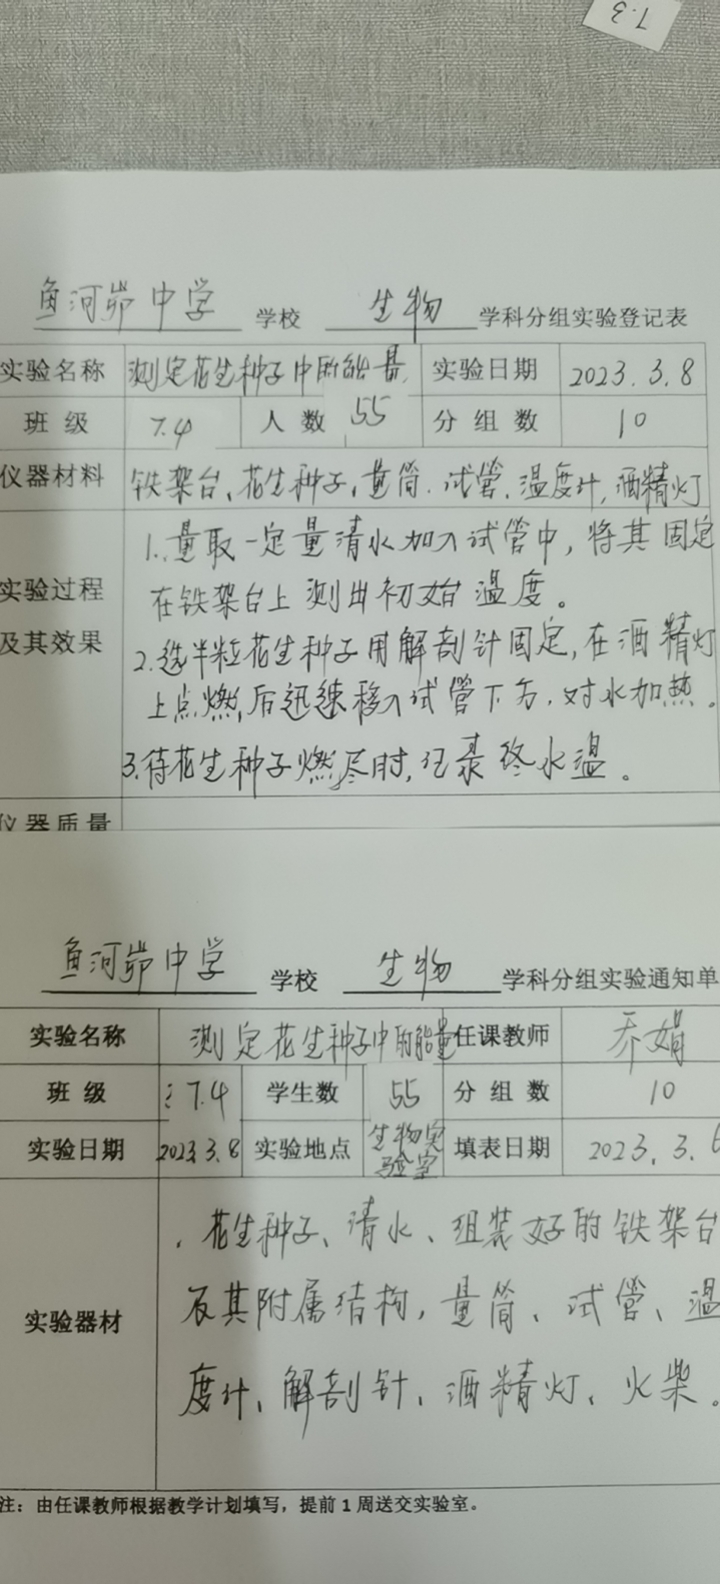 7.3
鱼河峁中学 学校 生物 学科分组实验登记表
实验名称 测定花生种子中的能量 实验日期 2023.3.8
班级 7.4 人数 55 分组数 10
仪器材料 铁架台、花生种子、量筒、试管、温度计、酒精灯
实验过程及其效果
1.量取一定量清水加入试管中，将其固定
在铁架台上测出初始温度。
2.选半粒花生种子用解剖针固定，在酒精灯
上点燃后迅速移入试管下方，对水加热。
3.待花生种子燃尽时，记录终水温。
仪器质量
鱼河峁中学 学校 生物 学科分组实验通知单
实验名称 测定花生种子中的能量 任课教师 乔娟
班级 7.4 学生数 55 分组数 10
实验日期 2023.3.8 实验地点 生物实验室 填表日期 2023.3.6
实验器材
花生种子、清水、组装好的铁架台
及其附属结构，量筒、试管、温
度计、解剖针、酒精灯、火柴。
注：由任课教师根据教学计划填写，提前1周送交实验室。